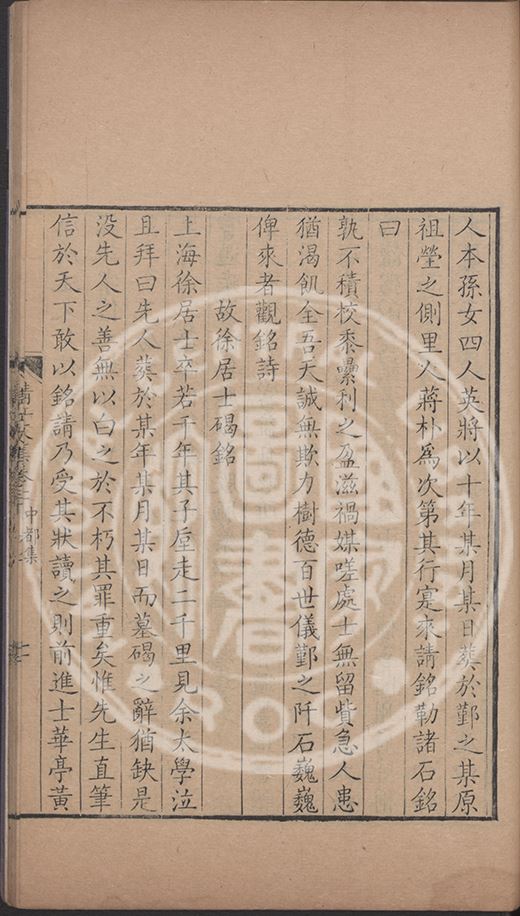 人本孫女四人英將以十年某月某日葬於鄞之某原
祖塋之側里人蔣朴為次第其行寔來請銘勒諸石銘
曰
孰不積校黍纍利之盈滋禍媒嗟處士無留貲急人患
猶渴飢全吾天誠無欺力樹德百世儀鄞之阡石巍巍
俾來者觀銘詩
故徐居士碣銘
上海徐居士卒若干年其子厔走二千里見余太學泣
且拜曰先人葬於某年某月某日而墓碣之辭猶缺是
沒先人之善無以白之於不朽其罪重矣惟先生直筆
信於天下敢以銘請乃受其狀讀之則前進士華亭黃
中都集